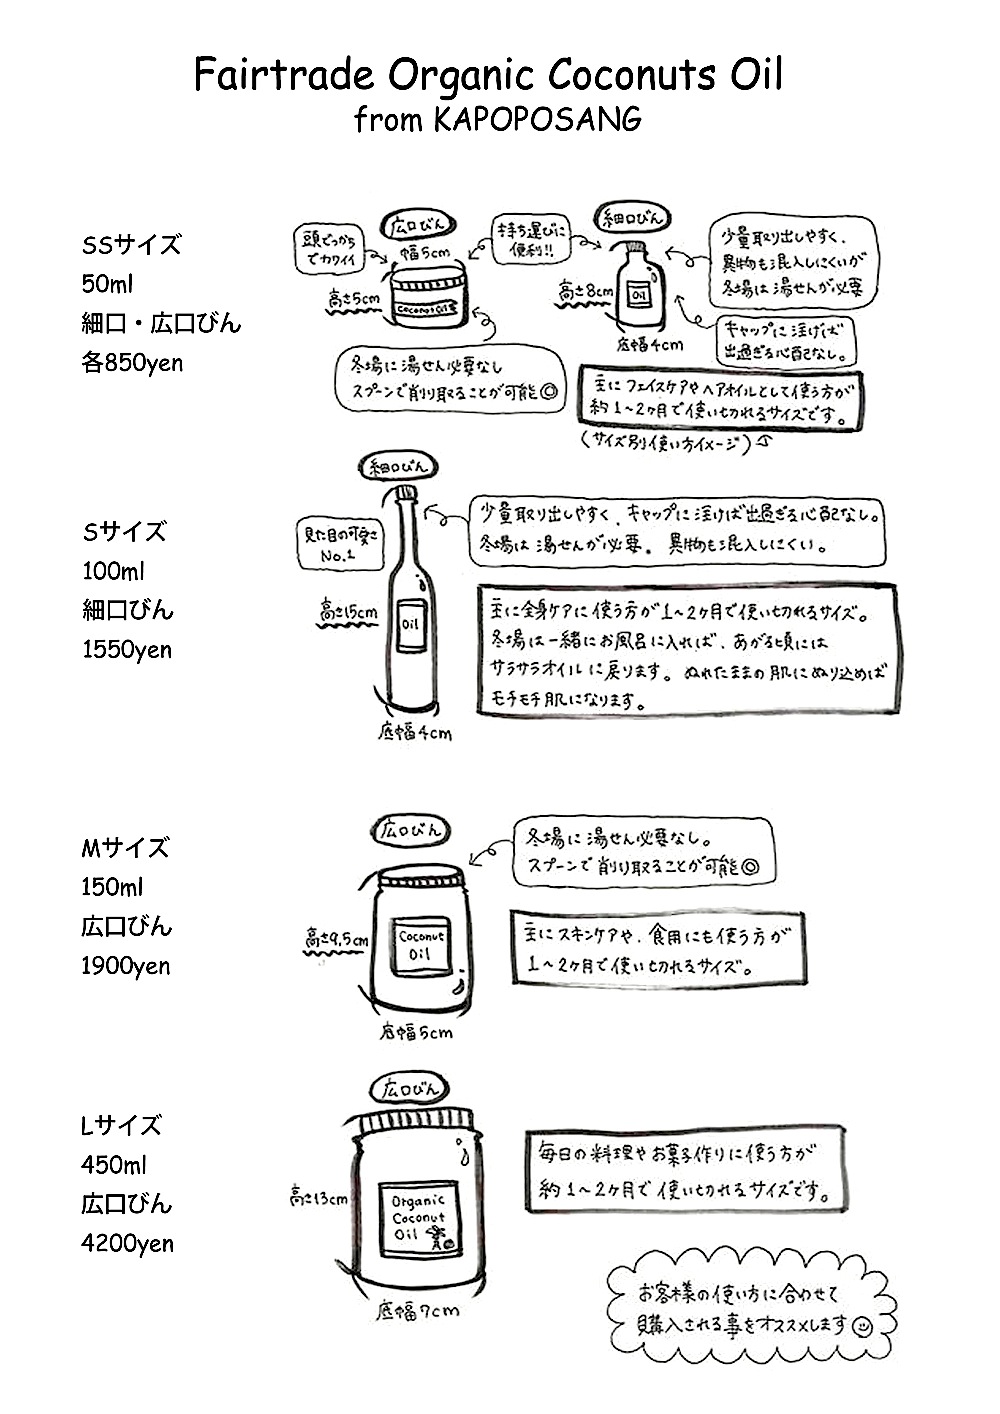 Fairtrade Organic Coconuts Oil
from KAPOPOSANG
SSサイズ
50ml
細口・広口びん
各850yen
広口びん
頭でっかち
でカワイイ
幅5cm
持ち運びに
便利!!
高さ5cm
coconut oil
冬場に湯せん必要なし
スプーンで削り取ることが可能◎
細口びん
高さ8cm
Oil
底幅4cm
少量取り出しやすく、
異物も混入しにくいが
冬場は湯せんが必要
キャップに注げば
出過ぎる心配なし。
主にフェイスケアやヘアオイルとして使う方が
約1~2ヶ月で使い切れるサイズです。
(サイズ別使い方イメージ)
Sサイズ
100ml
細口びん
1550yen
細口びん
見た目の可愛さ
No.1
高さ15cm
Oil
底幅4cm
少量取り出しやすく、キャップに注げば出過ぎる心配なし。
冬場は湯せんが必要。異物も混入しにくい。
主に全身ケアに使う方が1~2ヶ月で使い切れるサイズ。
冬場は一緒にお風呂に入れば、あがる頃には
サラサラオイルに戻ります。ぬれたままの肌にぬり込めば
モチモチ肌になります。
Mサイズ
150ml
広口びん
1900yen
広口びん
高さ9.5cm
Coconut
Oil
底幅5cm
冬場に湯せん必要なし。
スプーンで削り取ることが可能◎
主にスキンケアや、食用にも使う方が
1~2ヶ月で使い切れるサイズ。
Lサイズ
450ml
広口びん
4200yen
広口びん
高さ13cm
Organic
Coconut
Oil
底幅7cm
毎日の料理やお菓子作りに使う方が
約1~2ヶ月で使い切れるサイズです。
お客様の使い方に合わせて
購入される事をオススメします